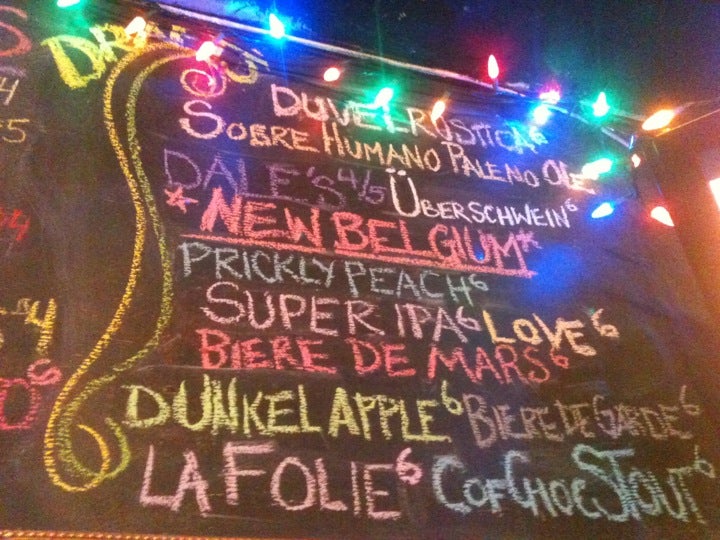 DRAFTS
DUVEL RUSTICA 6
SOBRE HUMANO PALENO OLE
DALE'S 4/5 ÜBERSCHWEIN 6
* NEW BELGIUM *
PRICKLY PEACH 6
SUPER IPA 6 LOVE 6
BIERE DE MARS 6
DUNKEL APPLE 6 BIERE DE GARDE 6
LA FOLIE 6 COFCHOC STOUT 6